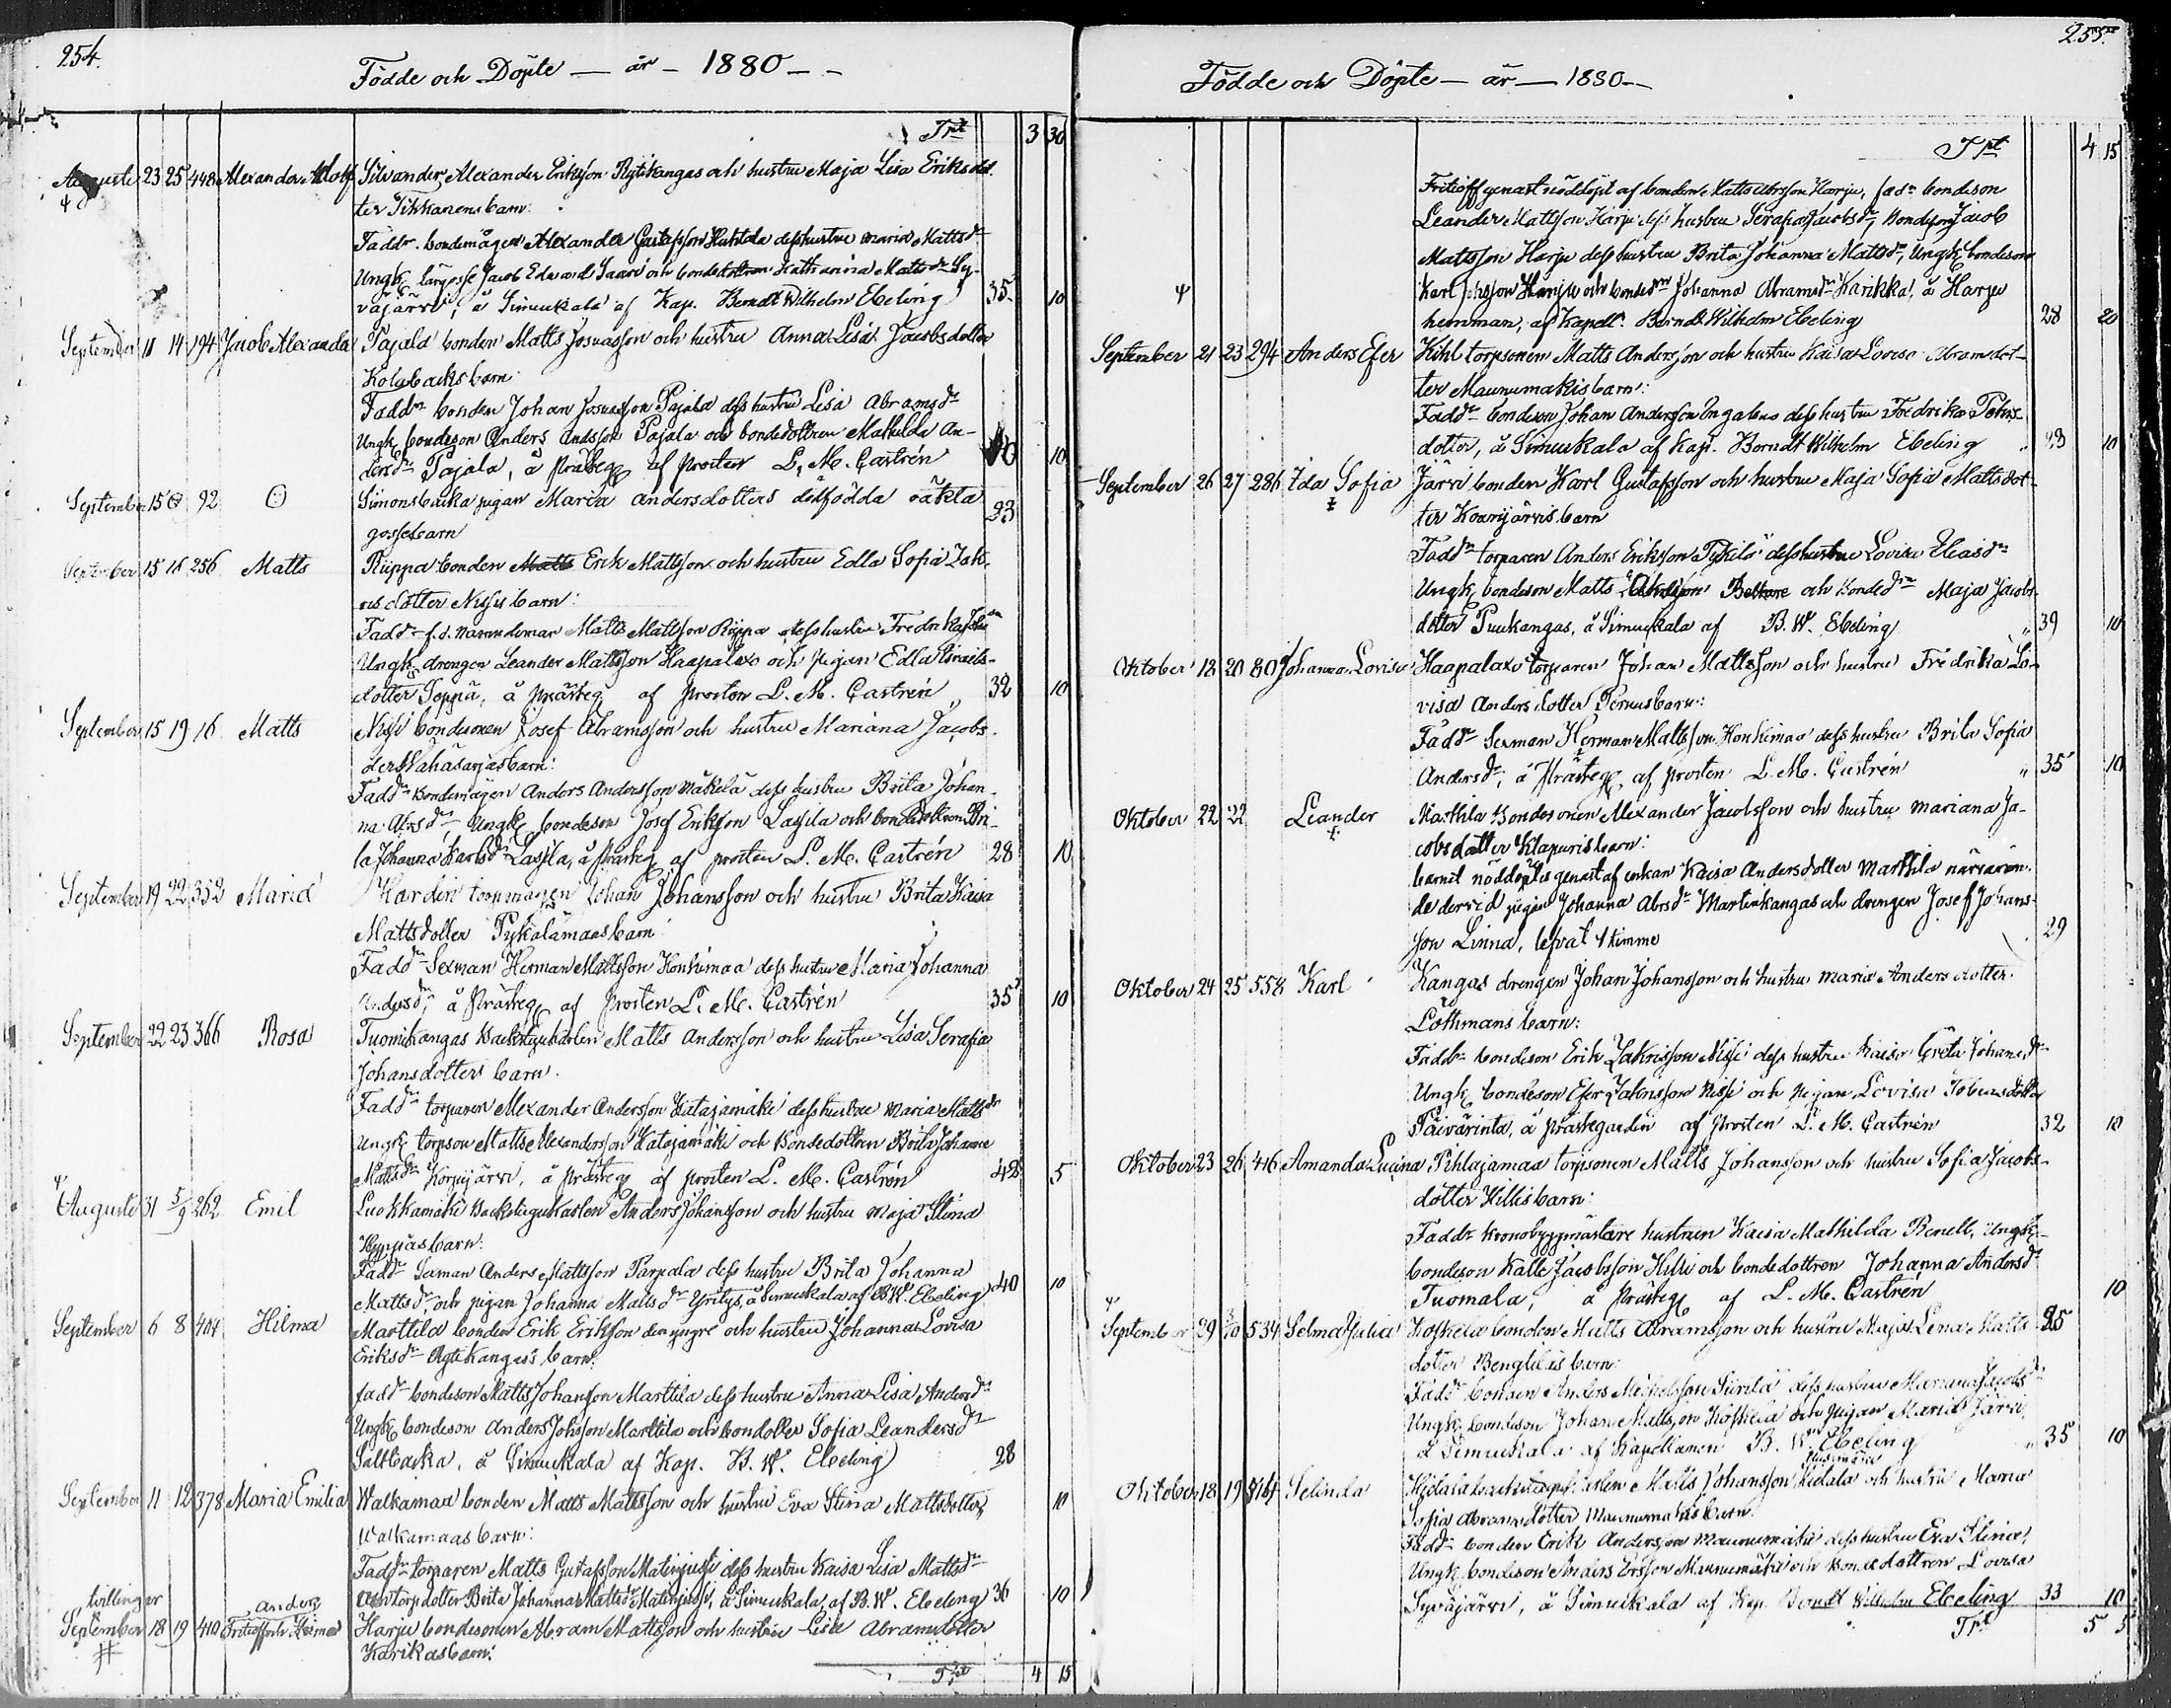 254.
Födde och Döpte — år — 1880 — —
Trt 3 30
Augusti 23 25 448 Alexander Adolf Silvander, Alexander Eriksson Rytikangas och hustru Maja Lisa Eriksdot
ter Tikkanens barn:
Faddr. bondemågen Alexander Gustafsson Huhtala dess hustru Maria Mattsdr
Ungk. lärgosse Jacob Edvard Saari och bondedottren Katharina Mattsdr Sy-
väjärvi, å Simuskala af Kap. Berndt Wilhelm Ebeling 35 10
September 11 14 194 Jacob Alexander Pajala bonden Matts Josuasson och hustru Anna Lisa Jacobsdotter
Kolabacks barn:
Faddr bonden Johan Josuasson Pajala dess hustru Lisa Abramsdr
Ungk. bondeson Anders Andsson Pajala och bondedottren Mathilda An-
dersdr Pajala, å Prästeg. af prosten L. M. Castrén 40 10
September 15 92 Simonsbacka pigan Maria Andersdotters dödfödda oäkta 23
gossebarn
September 15 16 256 Matts Riippa bonden Erik Mattsson och hustru Edla Sofia Zak-
risdotter Nissis barn:
Faddr f.d. Matts Mattsson Riippa dess hustru Fredrika
Ungk. drengen Leander Mattsson Haapalaxo och pigan Edla Israels-
dotter Soppa, å prästeg. af prosten L. M. Castrén 32 10
September 15 19 16 Matts Nissi bondesonen Josef Abramsson och hustru Mariana Jacobs
barn:
Faddr bondemågen Anders Andersson Mäkelä dess hustru Brita Johan-
na Absdr Ungk. bondeson Josef Eriksson Lassila och bondedottren Bri-
ta Johanna Karlsdr Lassila, å Prästeg. af prosten L. M. Castrén 28 10
September 19 22 352 Maria Hardin torpmågen Johan Johansson och hustru Brita Kaisa
Mattsdotter Pykälämaas barn
Faddr Sexman Herman Mattsson Honkimaa dess hustru Maria Johanna
Andersdr, å Prästeg. af Prosten L. M. Castrén 35 10
September 22 23 366 Rosa Tuomikangas Backstugukarlen Matts Andersson och hustru Lisa Serafia
Johansdotters barn.
Faddr torparen Alexander Andersson Katajamäki dess hustru Maria Mattsdr
Ungk. torpson Matts Alexandersson Katajamäki och Bondedottren Brita Johanna
Mattsdr Korpijärvi, å Prästeg. af prosten L. M. Castrén 42 5
Augusti 31 5/9 262 Emil Luokkamäki Backstugukarlen Anders Johansson och hustru Maja Stina
barn:
Faddr Sexman Anders Mattsson Parpala dess hustru Brita Johanna
Mattsdr, och pigan Johanna Mattsdr Yritys, å Simuskala af B.W. Ebeling 40 10
September 6 8 404 Hilma Marttila bonden Erik Eriksson den yngre och hustru Johanna Lovisa
Eriksdr barn:
Faddr bondeson Matts Johansson Marttila dess hustru Anna Lisa Andersdr
Ungk. bondeson Anders Johsson Marttila och bondotter Sofia Leandersdr
Saltbacka, å Simuskala af Kap. B. W. Ebeling 28
September 11 12 378 Maria Emilia Walkamaa bonden Matts Mattsson och hustru Eva Stina Mattsdotter 10
Walkamaas barn:
Faddr torparen Matts Gustafsson Matinjussi dess hustru Kaisa Lisa Mattsdr
och torpdotter Brita Johanna Mattsdr Matinjussi, å Simuskala, af B. W. Ebeling 36 10
tvillingar
September 18 19 410 Fritioff och Anders Harju bondesonen Abram Mattsson och hustru Lisa Abramsdotter
Karikas barn:
Trt 4 15
255.
Födde och Döpte — år — 1880 —
Trt 4 15
Fritioff genast nöddöpt af bonden Matts Abrsson Harju, fadr bondeson
Leander Mattsson Harju dess hustru Serafia Jacobsdr, Bondeson Jacob
Mattsson Harju dess hustru Brita Johanna Mattsdr, Ungk. bondeson
Karl Johsson Harju och bondedrn Johanna Abramsdr Karikka, å Harju
hemman, af Kapell. Berndt Wilhelm Ebeling 28 20
September 21 23 294 Anders Efer torpsonen Matts Andersson och hustru Kaisa Lovisa Abramsdot-
ter Maunumäkis barn:
Faddr bondeson Johan Andersson dess hustru Fredrika
dotter, å Simuskala af Kap. Berndt Wilhelm Ebeling 23 10
September 26 27 286 Ida Sofia Järvi bonden Karl Gustafsson och hustru Maja Sofia Mattsdot-
ter barn
Faddr torparen Anders Eriksson dess hustru Lovisa Eliasdr
Ungk. bondeson Matts och Bondedr Maja Jacobs-
dotter Puukangas, å Simuskala af B. W. Ebeling 39 10
Oktober 18 20 80 Johanna Lovisa Haapalaxo torparen Johan Mattsson och hustru Fredrika Lo-
visa Andersdotter Pernus barn:
Faddr Sexman Herman Mattsson Honkimaa dess hustru Brita Sofia
Andersdr, å Prästeg. af prosten L. M. Castrén 35 10
Oktober 22 22 Leander Marttila Bondesonen Alexander Jacobsson och hustru Mariana Ja-
cobsdotter Klapuris barn:
barnet nöddöptes genast af enkan Kaisa Andersdotter Marttila närvaran-
de dervid pigan Johanna Absdr Martinkangas och drengen Josef Johans-
son Linna, lefvat 1 timme 29
Oktober 24 25 558 Karl Kangas drengen Johan Johansson och hustru Maria Andersdotter
Löthmans barn:
Faddr bondeson Erik Zakrisson Nissi dess hustru Kaisa Greta Johansdr
Ungk. bondeson Efer Zakrisson Nissi och pigan Lovisa Tobiasdotter
Päivärinta, å Prästegården af Prosten L. M. Castrén 32 10
Oktober 23 26 416 Amanda Lucina Pihlajamaa torpsonen Matts Johansson och hustru Sofia Jacobs-
dotter Hillis barn:
Faddr kronobyggmästare hustrun Kaisa Mathilda Renell, Ungk.
bondeson Kalle Jacobsson Hilli och bondedottren Johanna Andersdr
Tuomala, å Prästeg. af L. M. Castrén 10
September 29 3/10 534 Selma Julia Koskela bonden Matts Abramsson och hustru Maja Lena Matts 25
dotter barn:
Faddr bonden Anders Michelsson dess hustru Mariana Jacobsdr
Ungk. bondeson Johan Mattsson Koskela och pigan Maria Järvi,
å Simuskala af Kapellanen B. W. Ebeling 35 10
Oktober 18 19 514 Selinda Matts Johansson och hustru Maria
Sofia Abramsdotter Maunumäkis barn.
Faddr bonden Erik Andersson Maunumäki dess hustru Eva Stina,
Ungk. bondeson Anders Ersson Maunumäki och Bondedottren Lovisa
Syväjärvi, å Simuskala af Kap. Berndt Wilhelm Ebeling 33 10
Trt 5 5